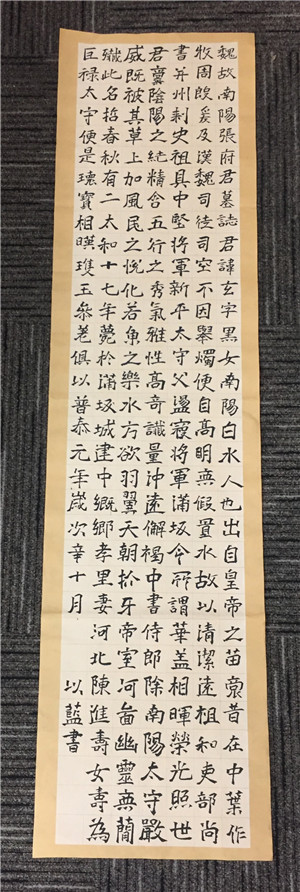 魏故南陽張府君墓誌君諱玄字黑女南陽白水人也出自皇帝之苗裔昔在中葉作
牧周殷爰及漢魏司徒司空不因舉燭便自高明無假置水故以清潔遠祖和吏部尚
書并州刾史祖具中堅將軍新平太守父盪寇將軍蒲坂令所謂華蓋相暉榮光照世
君稟陰陽之純精含五行之秀氣雅性高奇識量沖遠解褐中書侍郎除南陽太守嚴
威既被其草上加風民之悅化若魚之樂水方欲羽翼天朝抓牙帝室何啚幽靈無簡
殲此名哲春秋有二太和十七年薨於蒲坂城建中鄉鄉孝里妻河北陳進壽女壽為
巨祿太守便是瓌寶相暎瓊玉參差俱以普泰元年歲次辛十月
以藍書